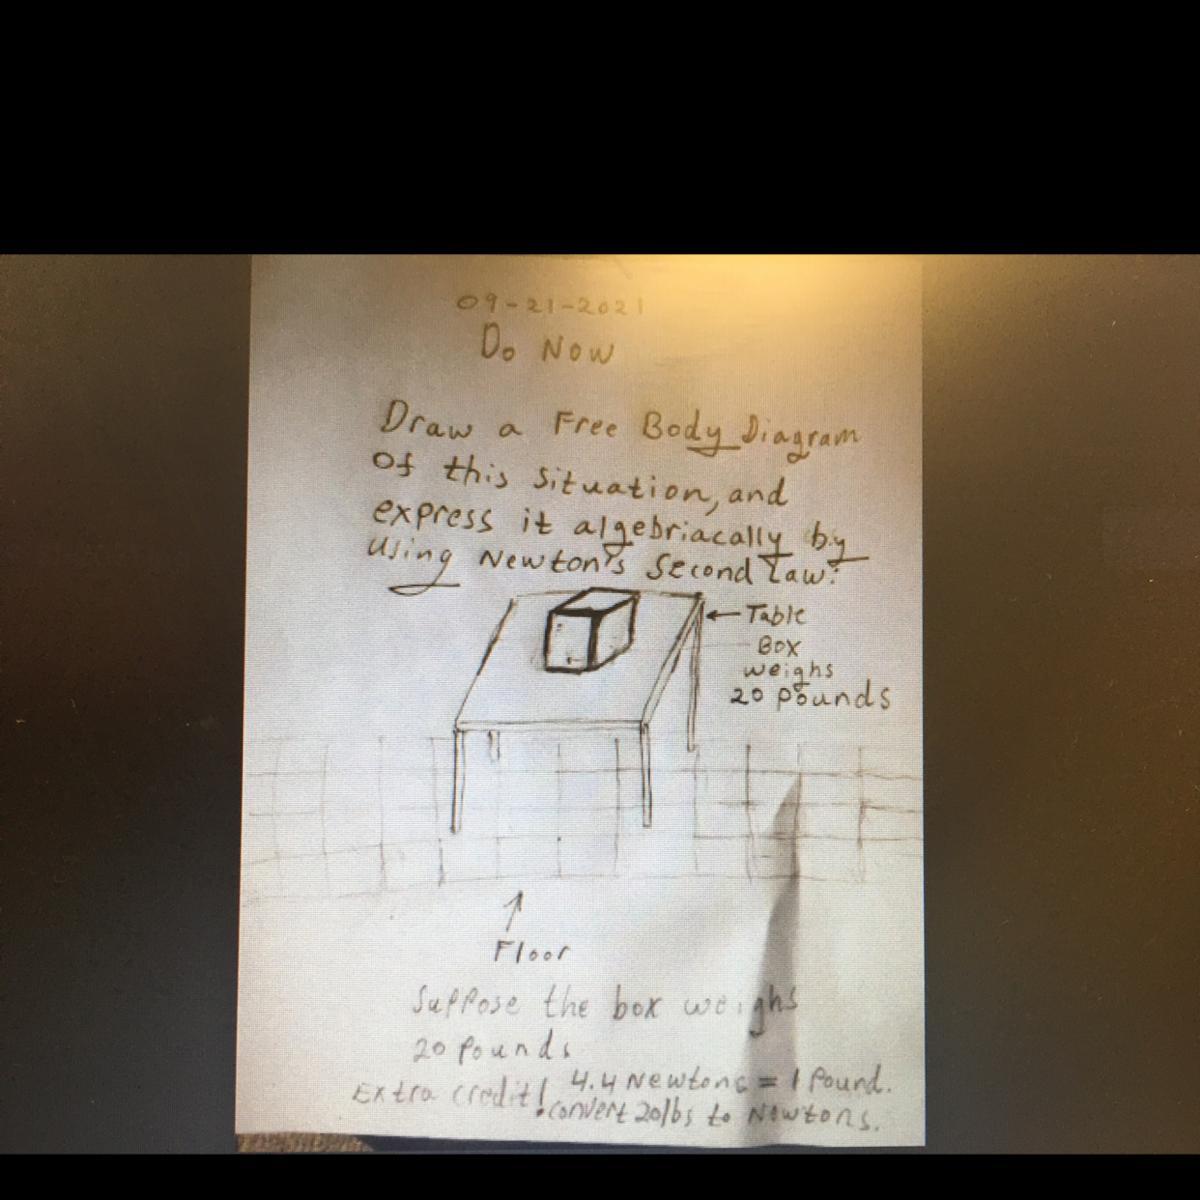 09-21-2021
Do Now
Draw a Free Body Diagram
of this situation, and
express it algebriacally by
using Newton's Second Law:
Table
Box
weighs
20 pounds
Floor
Suppose the box weighs
20 pounds
Extra credit! 4.4 Newtons = 1 Pound.
convert 20lbs to Newtons.